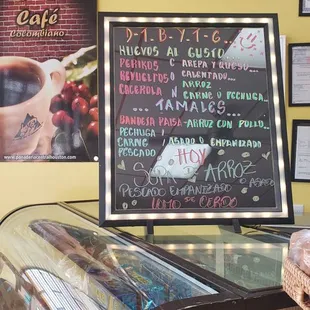 Café
Colombiano
D-1.BY.T-G..
HUEVOS AL GUSTO
PERIKOS C AREPA Y QUESO...
REVUELTOS O CALENTADO...
ARROZ
CACEROLA O CARNE O PECHUGA
... TAMALES...
BANDEJA PAISA - ARROZ CON POLLO..
PECHUGA
CARNE ASADO O EMPANIZADO
PESCADO
HOY
SOPA DE ARROZ
PESCADO EMPANIZADO O ASADO
LOMO DE CERDO